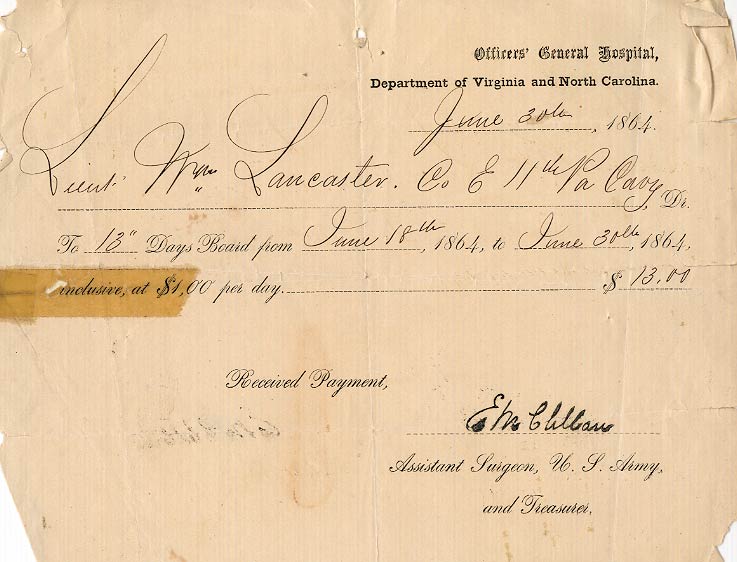 Officers' General Hospital,
Department of Virginia and North Carolina.
June 30th, 1864.
Lieut Wm Lancaster. Co E 11th Pa Cavy, Dr.
To 13" Days Board from June 18th, 1864, to June 30th, 1864,
inclusive, at $1,00 per day. $ 13.00
Received Payment,
Assistant Surgeon, U. S. Army,
and Treasurer.